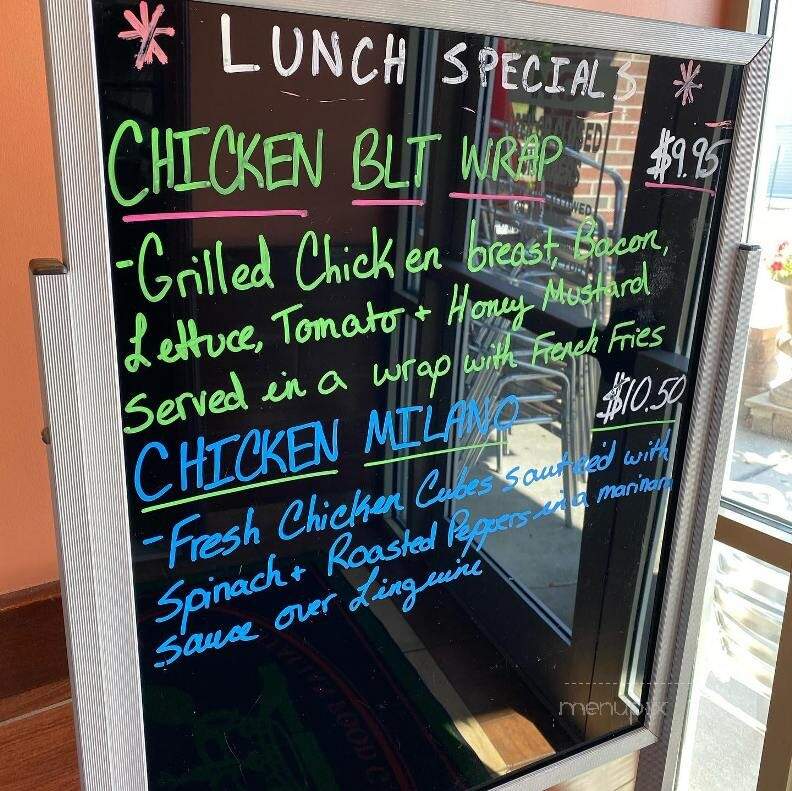 * LUNCH SPECIALS *
CHICKEN BLT WRAP $9.95
-Grilled Chicken breast, Bacon,
Lettuce, Tomato + Honey Mustard
Served in a wrap with French Fries
CHICKEN MILANO $10.50
-Fresh Chicken Cubes sauteed with
Spinach + Roasted Peppers in a marinara
sauce over Linguine
menupix